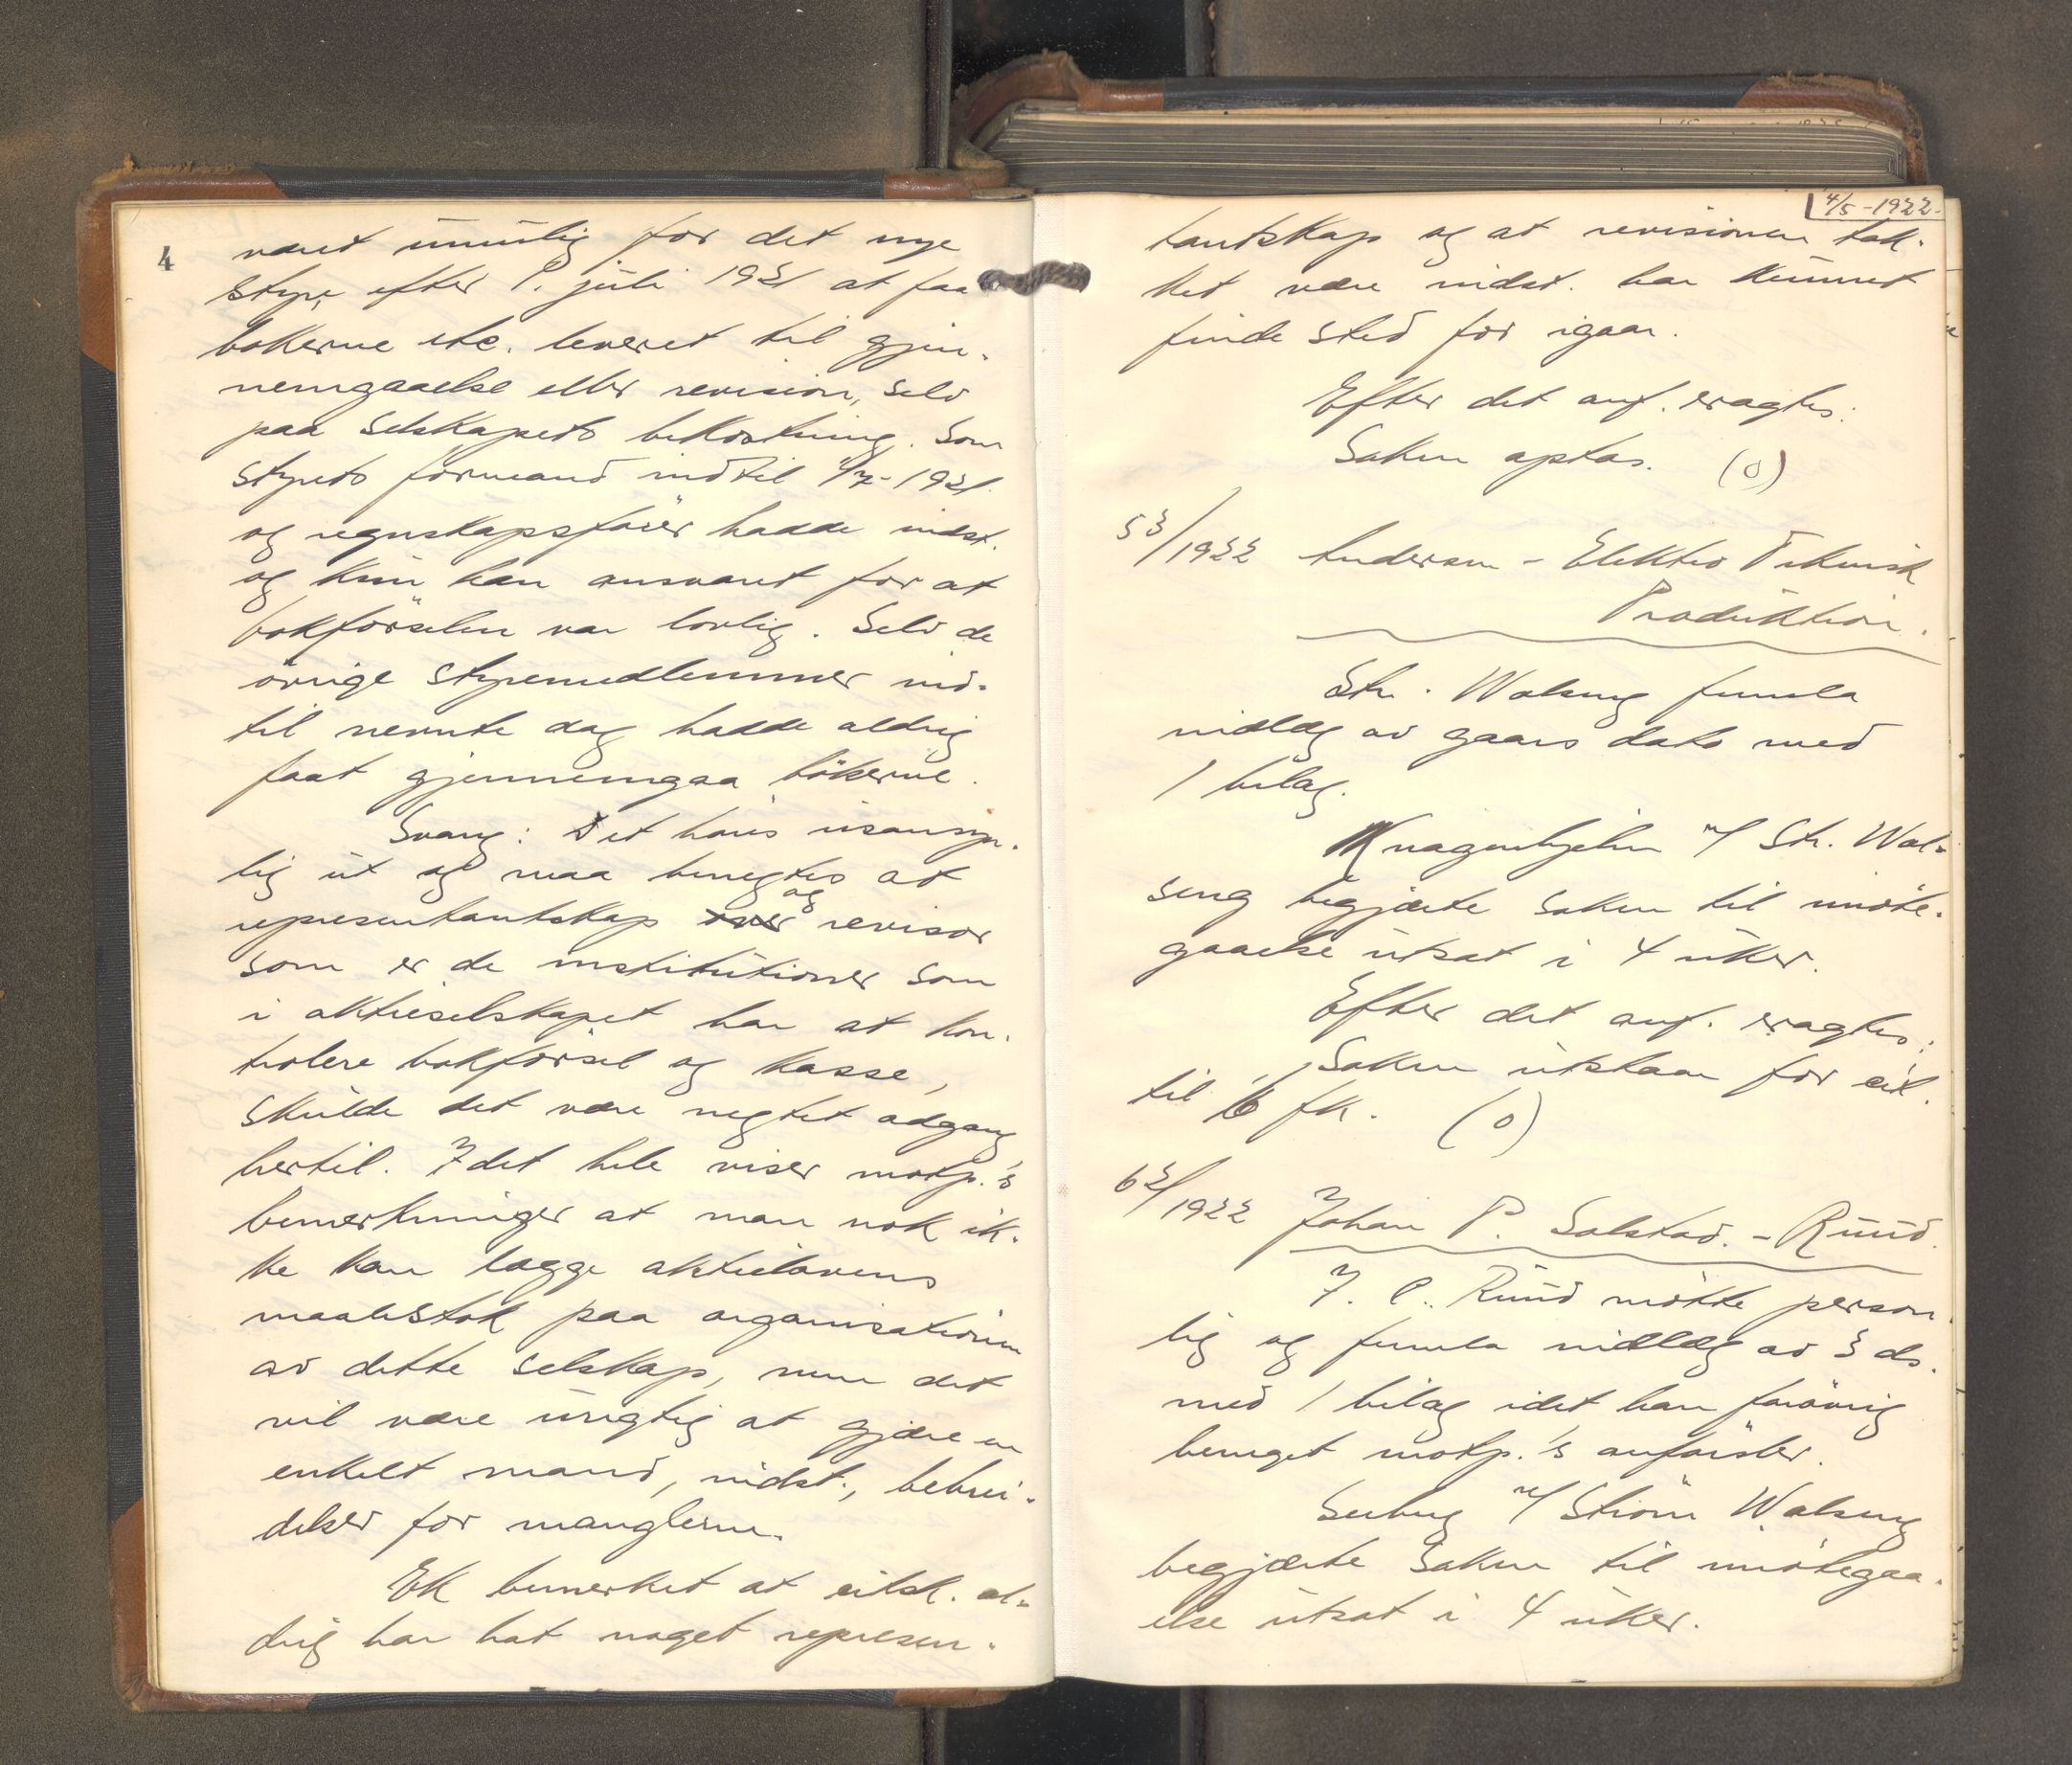 4
været umulig for det nye
styre efter 1. juli 1921 at faa
bøkerne etc. leveret til gjen-
nemgaaelse eller revision, selv
paa selskapets bekostning. Som
styrets formand indtil 1/7-1921
og regnskapsfører hadde indst.
og kun han ansvaret for at
bokførselen var lovlig. Selv de
øvrige styremedlemmer ind-
til nevnte dag hadde aldrig
faat gjennemgaa bøkerne.
Svang: Det høres usansyn-
lig ut og maa benegtes at
representantskap og revisor
som er de institutioner som
i aktieselskapet har at kon-
trolere bokførsel og kasse,
skulde det være negtet adgang
hertil. I det hele viser motp.'s
bemerkninger at man nok ik-
ke kan lægge aktielovens
maalestok paa organisationen
av dette selskap, men det
vil være urigtig at gjøre en
enkelt mand, indst., bebrei-
delser for manglerne.
EK bemerket at citsk. al-
drig har hat noget represen-
4/5-1922-
tantskap og at revisionen tak-
ket være indst. har kunnet
finde sted før igaar.
Efter det anf. eragtes:
Saken optas. (o)
53/1922 Andersen - Elektro Teknisk
Produktion.
Str. Walseng fremla
indlæg av gaars dato med
1 bilag.
Knagenhjelm m/ Str. Wal-
seng begjærte saken til imøte-
gaaelse utsat i 4 uker.
Efter det anf. eragtes:
Saken utstaar for cit.
til 16 fk. (o)
62/1922 Johan P. Solstad. - Ruud.
I. C. Ruud møtte person-
lig og fremla indlæg av 3 ds.
med 1 bilag idet han forøvrig
beneget motp.'s anførsler.
Seeberg m/ Strøm Walseng
begjærte saken til imøtegaa-
else utsat i 4 uker.